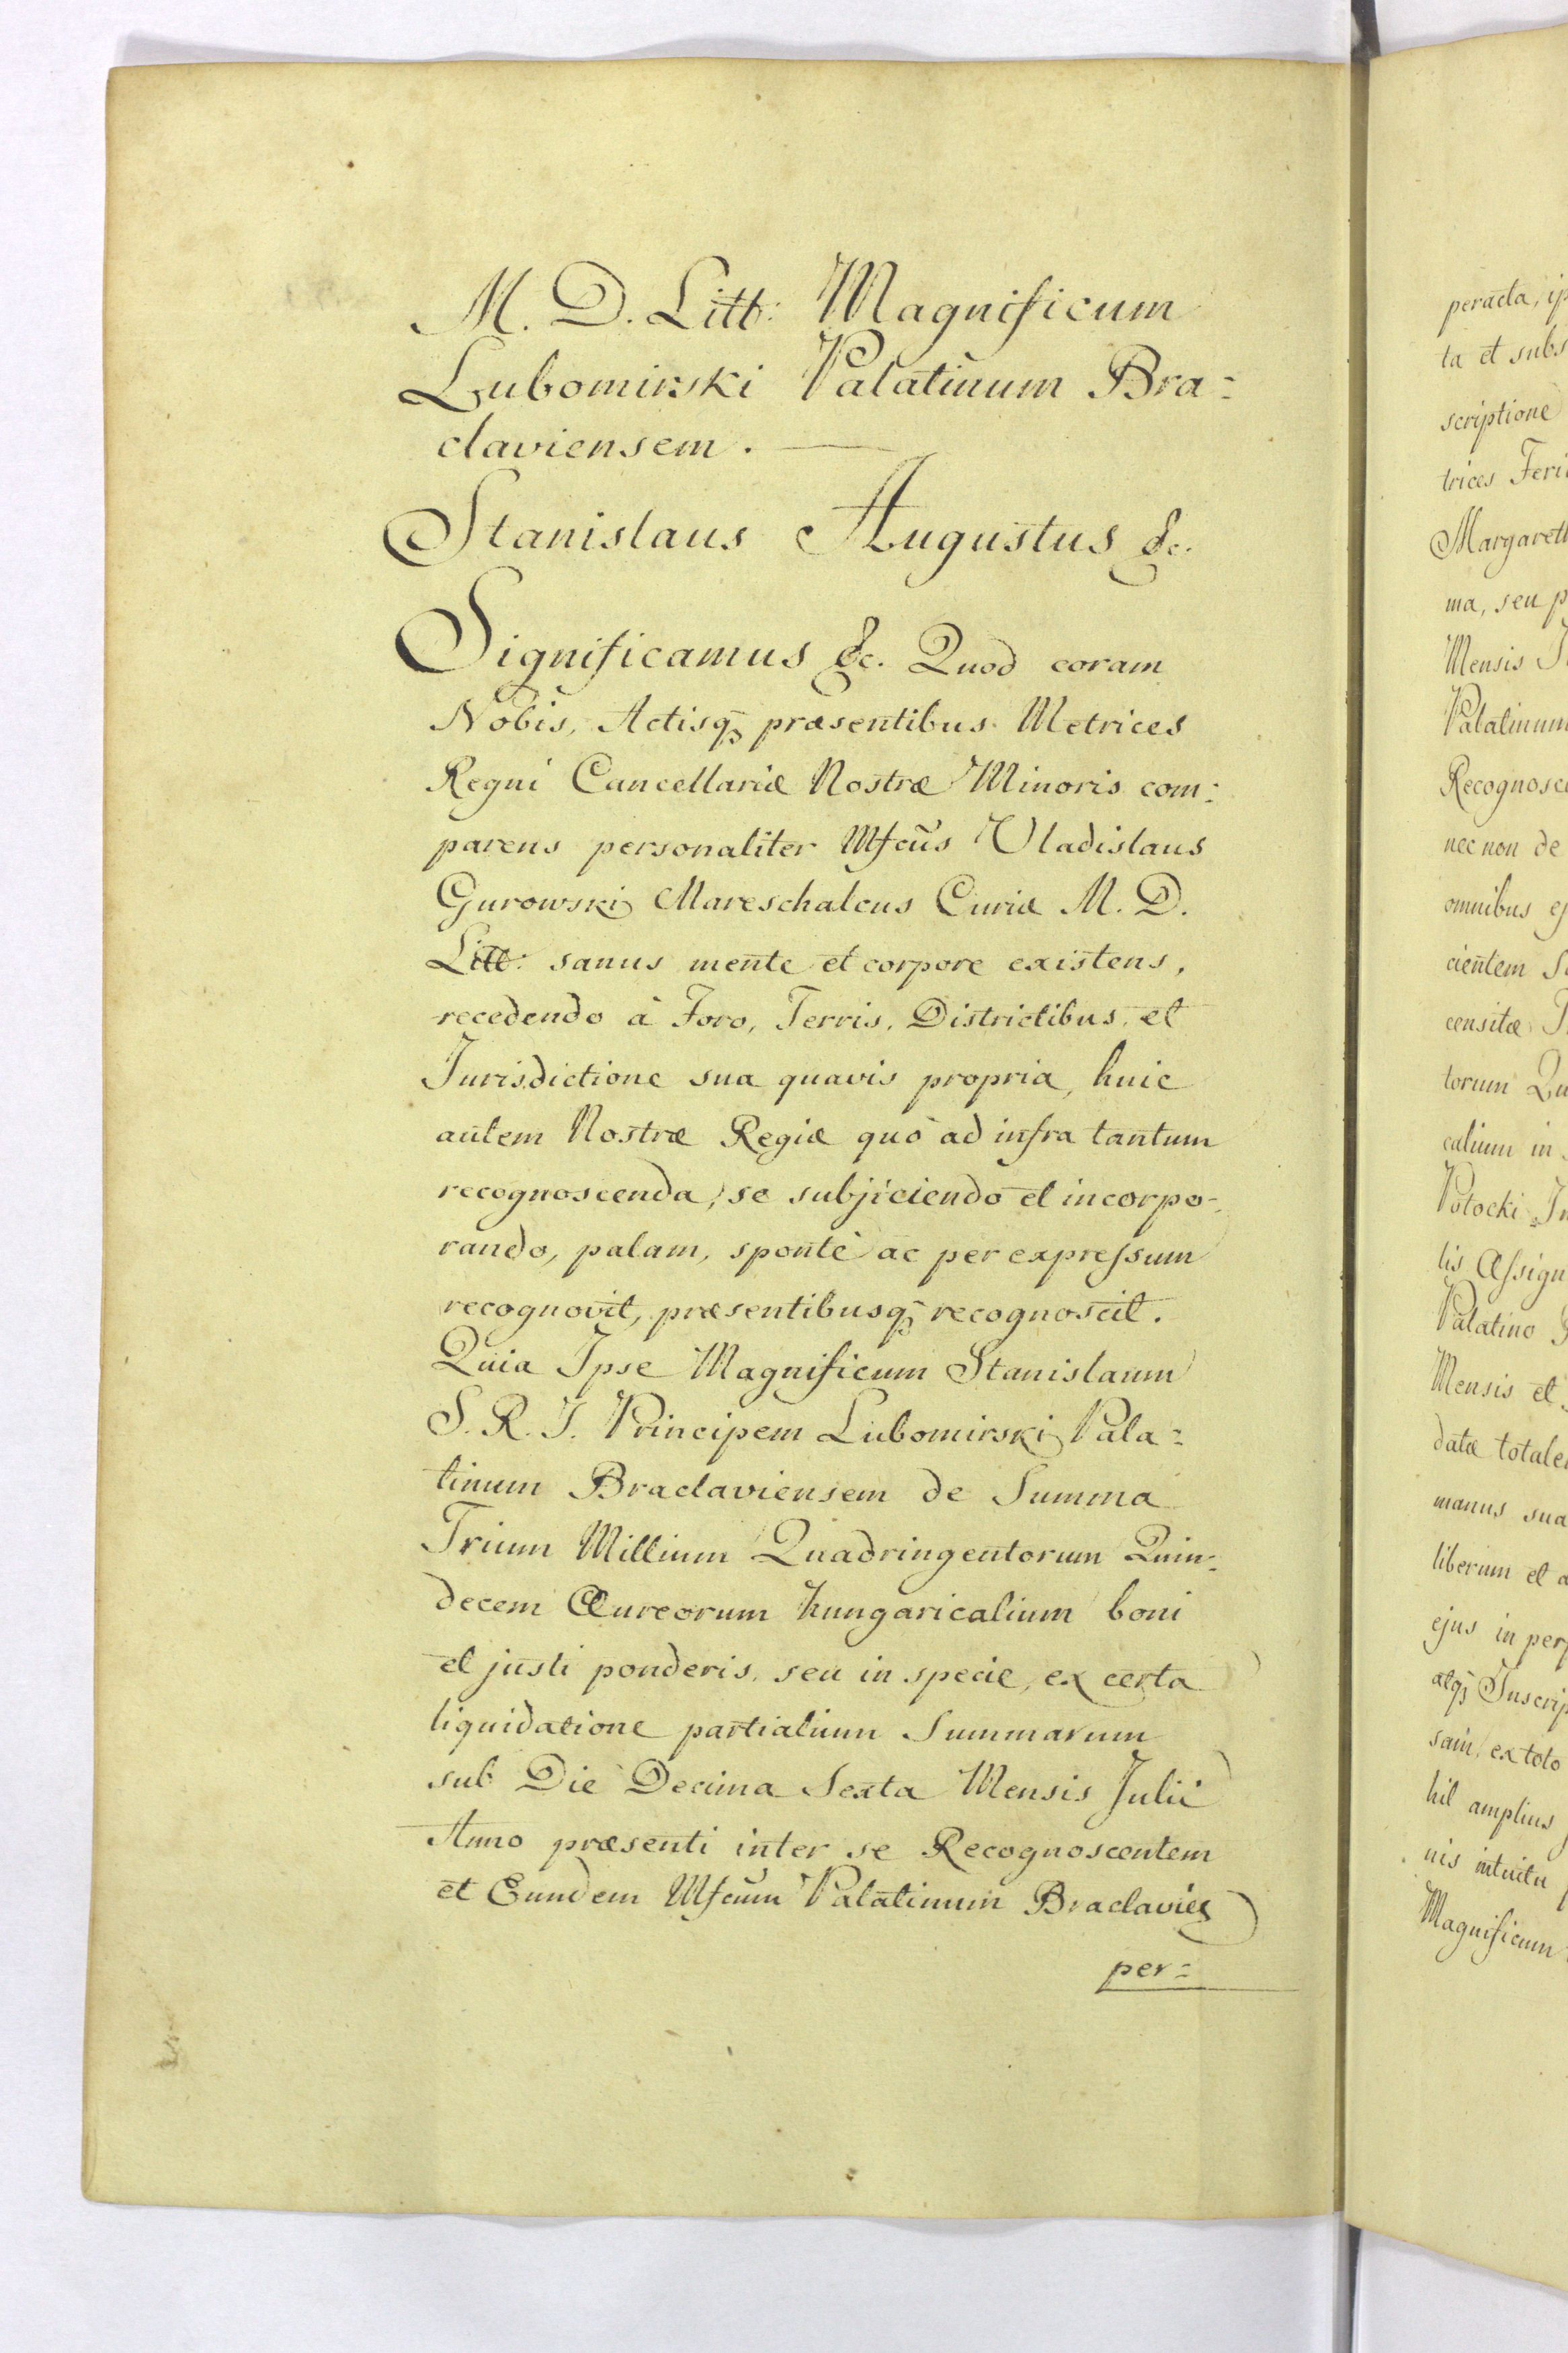 M. D. Litt: Magnificum
Lubomirski Palatinum Bra=
claviensem.
Stanislaus Augustus &c.
Significamus &c. Quod coram
Nobis, Actisq̄ præsentibus Metrices
Regni Cancellariæ Nostræ Minoris com=
parens personaliter Mfcus Vladislaus
Gurowski Mareschalcus Curiæ M. D.
Litt: sanus mente et corpore existens,
recedendo à Foro, Terris, Districtibus, et
Jurisdictione sua quavis propria, huic
autem Nostræ Regiæ quò ad infra tantum
recognoscenda, se subjiciendo et incorpo-
rando, palam, spontè ac per expressum
recognovit, præsentibusq̄ recognoscit.
Quia Ipse Magnificum Stanislaum
S. R. I. Principem Lubomirski Pala=
tinum Braclaviensem de Summa
Trium Millium Quadringentorum Quin=
decem Aureorum hungaricalium boni
et justi ponderis, seu in specie, ex certa
liquidatione partialium Summarum
sub Die Decima Sexta Mensis Julii
Anno præsenti inter se Recognoscentem
et Eundem Mfcum Palatinum Braclavien
per=
peracta,
ta et
scriptione
trices
ma, seu
Mensis
Palatinum
nec non de
omnibus
cientem
censitæ
torum
calium in
Potocki
lis
Palatino
Mensis et
datæ
manus sua
liberum et
ejus in
atq̄
sam, ex toto
hil amplius
nis intuitu
Magnificum